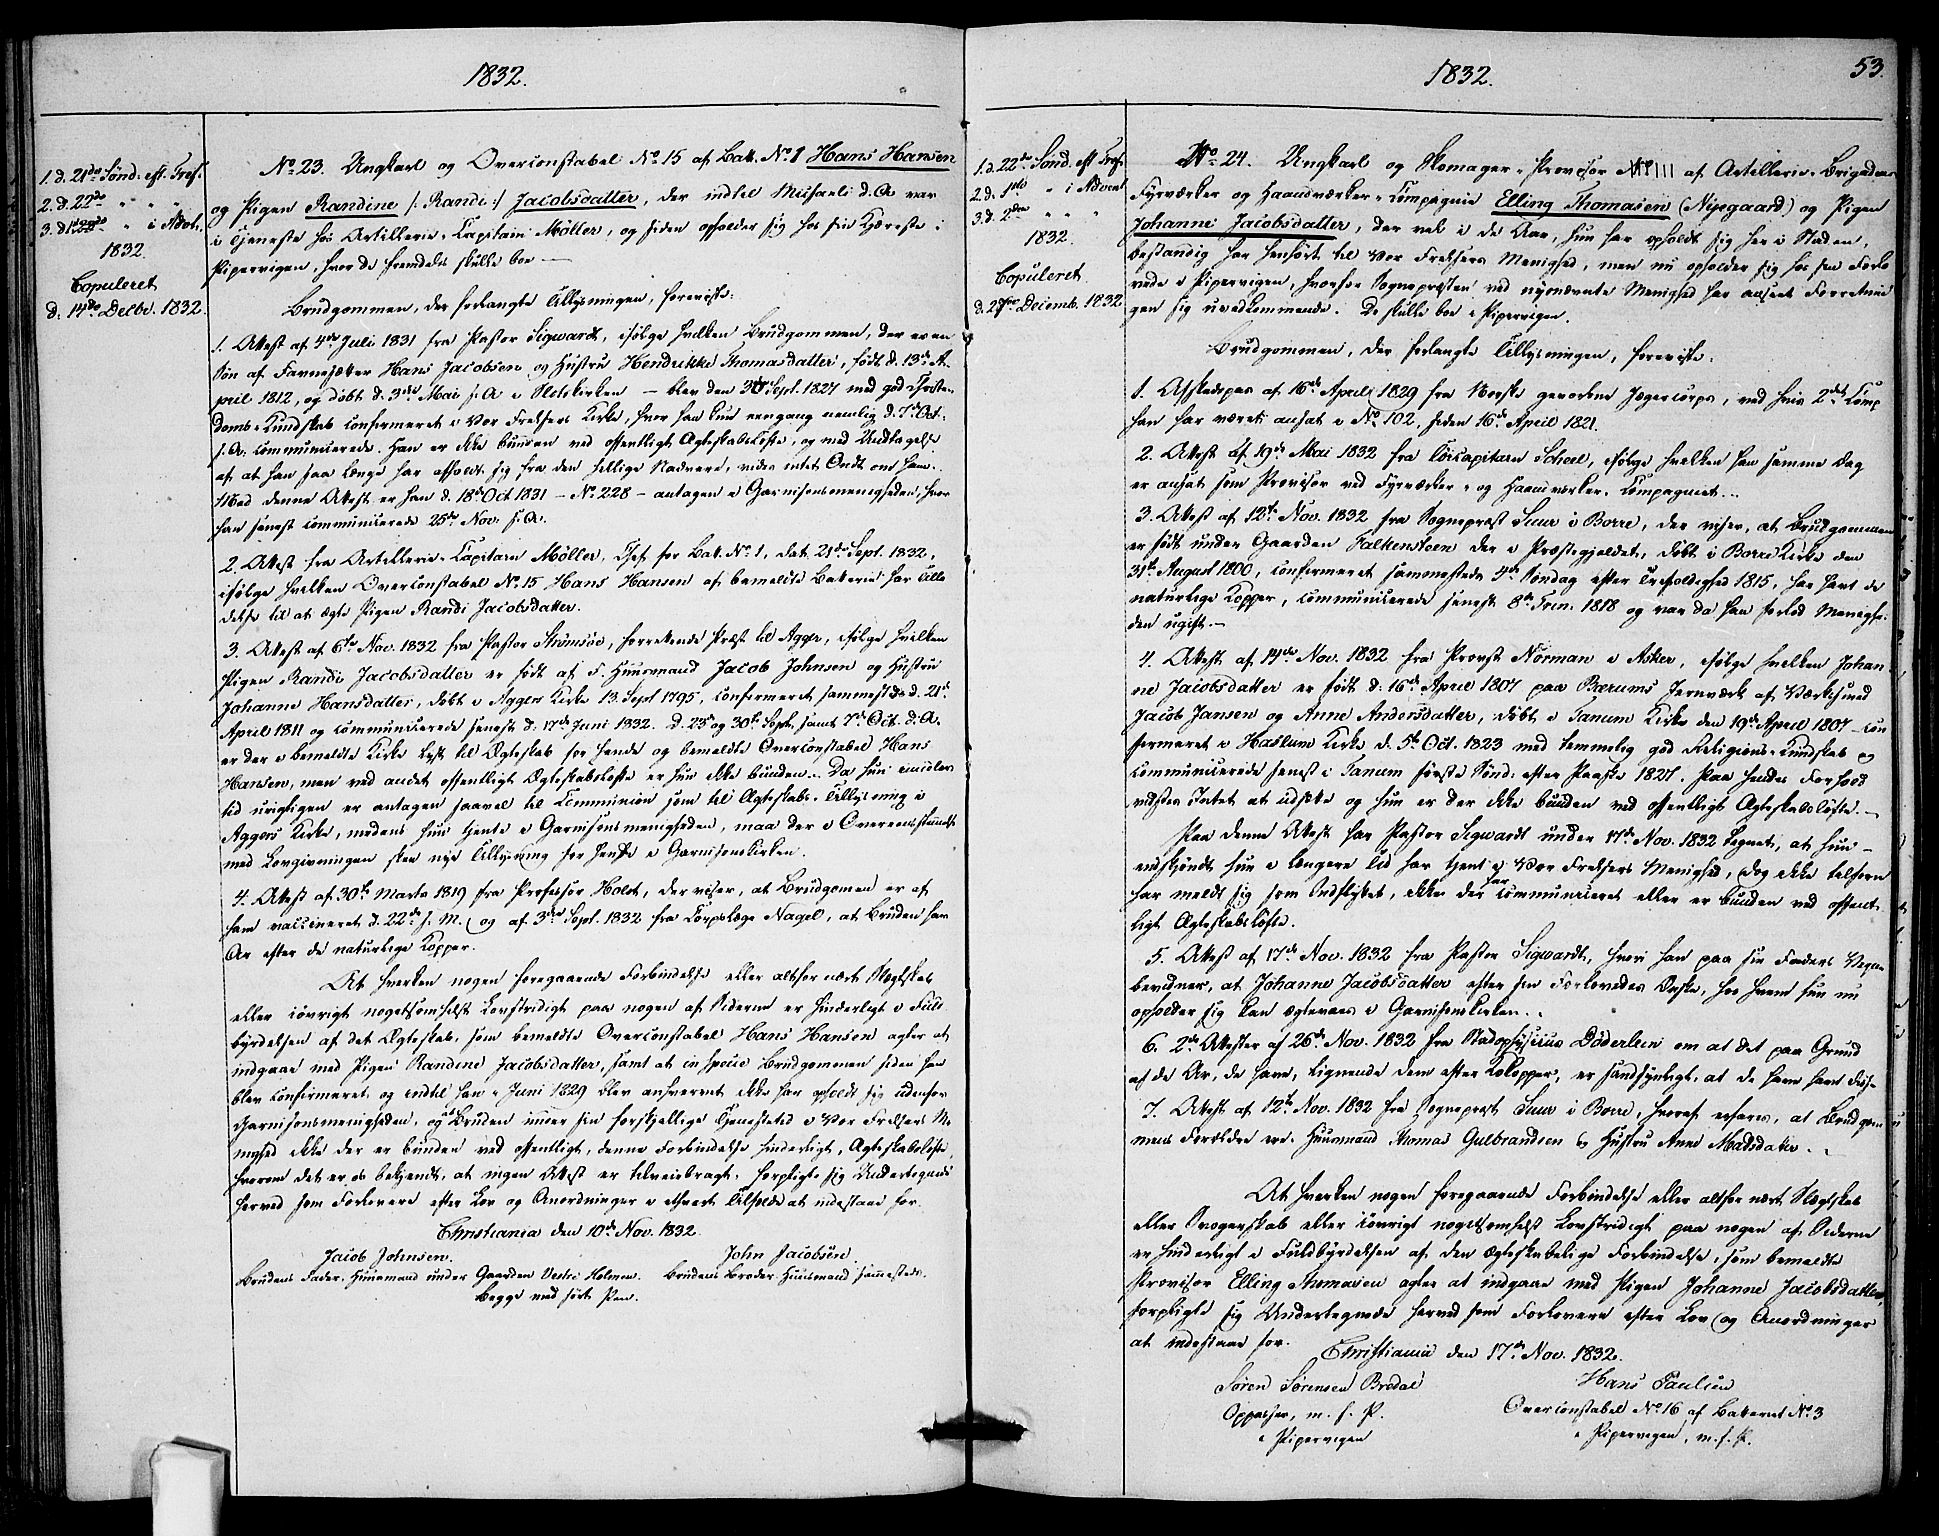 1832.
1. d. 21de Sønd. eft. Tref.
2. d. 22de " " "
3. d. " i Advt.
1832.
Copuleret
d. 14de Decbr. 1832.
No 23. Ungkarl og Overconstabel No 15 af Batt. No 1 Hans Hansen
og Pigen Randine /: Randi :/ Jacobsdatter, der indtil Michaeli d. A. var
i Tjeneste hos Artillerie-Capitain Møller, og siden opholder sig hos sin Kjæreste i
Pipervigen, hvor de fremdeles skulle boe —
Brudgommen, der forlangte Tillysningen, foreviste:
1. Attest af 4de Juli 1831 fra Pastor Sigwardt, ifølge hvilken Brudgommen, der er en
Søn af Hans Jacobsen og Hustru Hendrikke Thomasdatter, født d. 13de A-
pril 1812, og døbt d. 3die Mai s. A. i Slotskirken — blev den 30te Sept. 1827 med god Christen-
doms-Kundskab confirmeret i Vor Frelsers Kirke, hvor han kun eengang nemlig d. 7de Oct.
s. A. communicerede. Han er ikke bunden ved offentligt Ægteskabsløfte, og med Undtagelse
af at han saa længe har afholdt sig fra den hellige Nadvere, vides intet Ondt om ham.
Med denne Attest er han d. 18de Oct 1831 — No 228 — antagen i Garnisonsmenigheden, hvor
han senest communicerede 25de Nov. s. A.
2. Attest fra Artillerie-Capitain Møller, Chef for Bat. No 1, dat. 21de Sept. 1832,
ifølge hvilken Overconstabel No 15 Hans Hansen af bemeldte Batterie har Tilla-
delse til at ægte Pigen Randi Jacobsdatter.
3. Attest af 6te Nov. 1832 fra Pastor Strømsöe, Præst til Agger, ifølge hvilken
Pigen Randi Jacobsdatter er født af F. Huusmand Jacob Johnsen og Hustru
Johanne Hansdatter, døbt i Aggers Kirke 13. Sept 1795, confirmeret sammesteds d. 21de
April 1811 og communicerede senest d. 17de Juni 1832. D. 23de og 30te Sept. samt 7de Oct. d. A.
er der i bemeldte Kirke lyst til Ægteskab for hende og bemeldte Overconstabel Hans
Hansen, men ved andet offentligt Ægteskabsløfte er hun ikke bunden. Da hun imidler-
tid urigtigen er antagen saavel til Communion som til Ægteskabs-Tillysning i
Aggers Kirke, medens hun tjente i Garnisonsmenigheden, maa der i Overeensstemmelse
med Lovgivningen skee nye Tillysning for hende i Garnisonskirken.
4. Attest af 30te Marts 1819 fra Professor Holst, der viser, at Brudgomen er af
ham vaccineret d. 22de s. M. og af 3die Sept. 1832 fra Corpslæge Nagel, at Bruden har
Ar efter de naturlige Kopper.
At hverken nogen foregaaende Forbindelse eller altfor nært Slægtskab
eller iøvrigt nogetsomhelst Lovstridigt paa nogen af Siderne er hinderligt i Fuld-
byrdelsen af det Ægteskab, som bemeldte Overconstabel Hans Hansen agter at
indgaae med Pigen Randine Jacobsdatter, samt at in specie Brudgommen siden han
blev confirmeret og indtil han i Juni 1829 blev anhvervet ikke har opholdt sig udenfor
Garnisonsmenigheden, og Bruden under sin forskjellige Tjenestetid i Vor Frelsers Me-
nighed ikke der er bunden ved offentligt, denne Forbindelse hinderligt, Ægteskabsløfte,
hvorom det er os bekjendt, at ingen Attest er tilveiebragt, forpligte sig Undertegnede
herved som Forlovere efter Lov og Anordninger i ethvert Tilfælde at indestaae for.
Christiania den 10de Nov. 1832.
Jacob Johnsen. John Jacobsen.
Brudens Fader. Huusmand under Gaarden Vestre Holmen. Brudens Broder. Huusmand sammesteds.
begge med ført Pen.
1832.
53.
1. d. 22de Sønd. eft. Tref.
2. d. 1ste " i Advent
3. d. 2den " " "
1832.
Copuleret
d. 27de Decemb. 1832
No 24. Ungkarl og Skomager-Provisor No III af Artillerie-Brigadens
Fyrværker og Haandværker-Compagnie Elling Thomasen (Nipegaard) og Pigen
Johanne Jacobsdatter, der vel i de Aar, hun har opholdt sig her i Staden,
bestandig har henhørt til Vor Frelsers Menighed, men nu opholder sig hos sin Forlo-
vede i Pipervigen, hvorfor Sognepræsten ved nysnævnte Menighed har anseet Forretnin-
gen sig uvedkommende. De skulle boe i Pipervigen.
Brudgommen, der forlangte Tillysningen, foreviste:
1. Afskedspas af 16de April 1829 fra Norske gevorbne Jægercorps, ved hvis 2det Comp
han har været ansat i No 102, siden 16de April 1821.
2. Attest af 19de Mai 1832 fra Capitain Scheel, ifølge hvilken han samme Dag
er ansat som Provisor ved Fyrværker- og Haandværker-Compagniet.
3. Attest af 12te Nov. 1832 fra Sognepræst Suur i Borre, der viser, at Brudgommen
er født under Gaarden Falkensteen der i Præstegjeldet, døbt i Borre Kirke den
31te August 1800, confirmeret sammesteds 4de Søndag efter Trefoldighed 1815, har havt de
naturlige Kopper, communicerede senest 8de Trin. 1818 og var da han forlod Menighe-
den ugift. —
4. Attest af 14de Nov. 1832 fra Provst Norman i Asker, ifølge hvilken Johan-
ne Jacobsdatter er født d. 16de April 1807 paa Bærums Jernværk af Værksmed
Jacob Jansen og Anne Andersdatter, døbt i Tanum Kirke den 19de April 1807, con-
firmeret i Haslum Kirke d. 5te Oct. 1823 med temmelig god Religions-Kundskab og
communicerede senest i Tanum første Sønd. efter Paaske 1827. Paa hendes Forhold
vidstes Intet at udsætte og hun er der ikke bunden ved offentligt Ægteskabsløfte. —
Paa denne Attest har Pastor Sigwardt under 17de Nov. 1832 tegnet, at hun —
endskjøndt hun i længere Tid har tjent i Vor Frelsers Menighed, dog ikke tilforn
har meldt sig som Indflyttet, ikke der har communiceret eller er bunden ved offent-
ligt Ægteskabsløfte.
5. Attest af 17de Nov. 1832 fra Pastor Sigwardt, hvori han paa sin Faders Vegne
bevidner, at Johanne Jacobsdatter efter sin Forlovedes Ønske, hos hvem hun nu
opholder sig kan ægtevies i Garnisonskirken.
6. 2de Attester af 26de Nov. 1832 fra Stadsphysicus Döderlein om at det paa Grund
af de Ar, de have, lignende dem efter Kokopper, er sandsynligt, at de have havt disse
7. Attest af 12te Nov. 1832 fra Sognepræst Suur i Borre, hvoraf erfares, at Brudgom-
mens Forældre ere. Huusmand Thomas Gulbrandsen og Hustru Anne Madsdatter.
At hverken nogen foregaaende Forbindelse eller altfor nært Slægtskab
eller Svogerskab eller iøvrigt nogetsomhelst Lovstridigt paa nogen af Siderne
er hinderligt i Fuldbyrdelsen af den ægteskabelige Forbindelse, som bemeldte
Provisor Elling Thomasen agter at indgaae med Pigen Johanne Jacobsdatter,
forpligte sig Undertegnede herved som Forlovere efter Lov og Anordninger
at indestaae for.
Christiania den 17de Nov. 1832.
Søren Sørensen Bredal Hans Paulsen
Oppasser, m. f. P. Overconstabel No 16 af Batteriet No 3
i Pipervigen i Pipervigen, m. f. P.